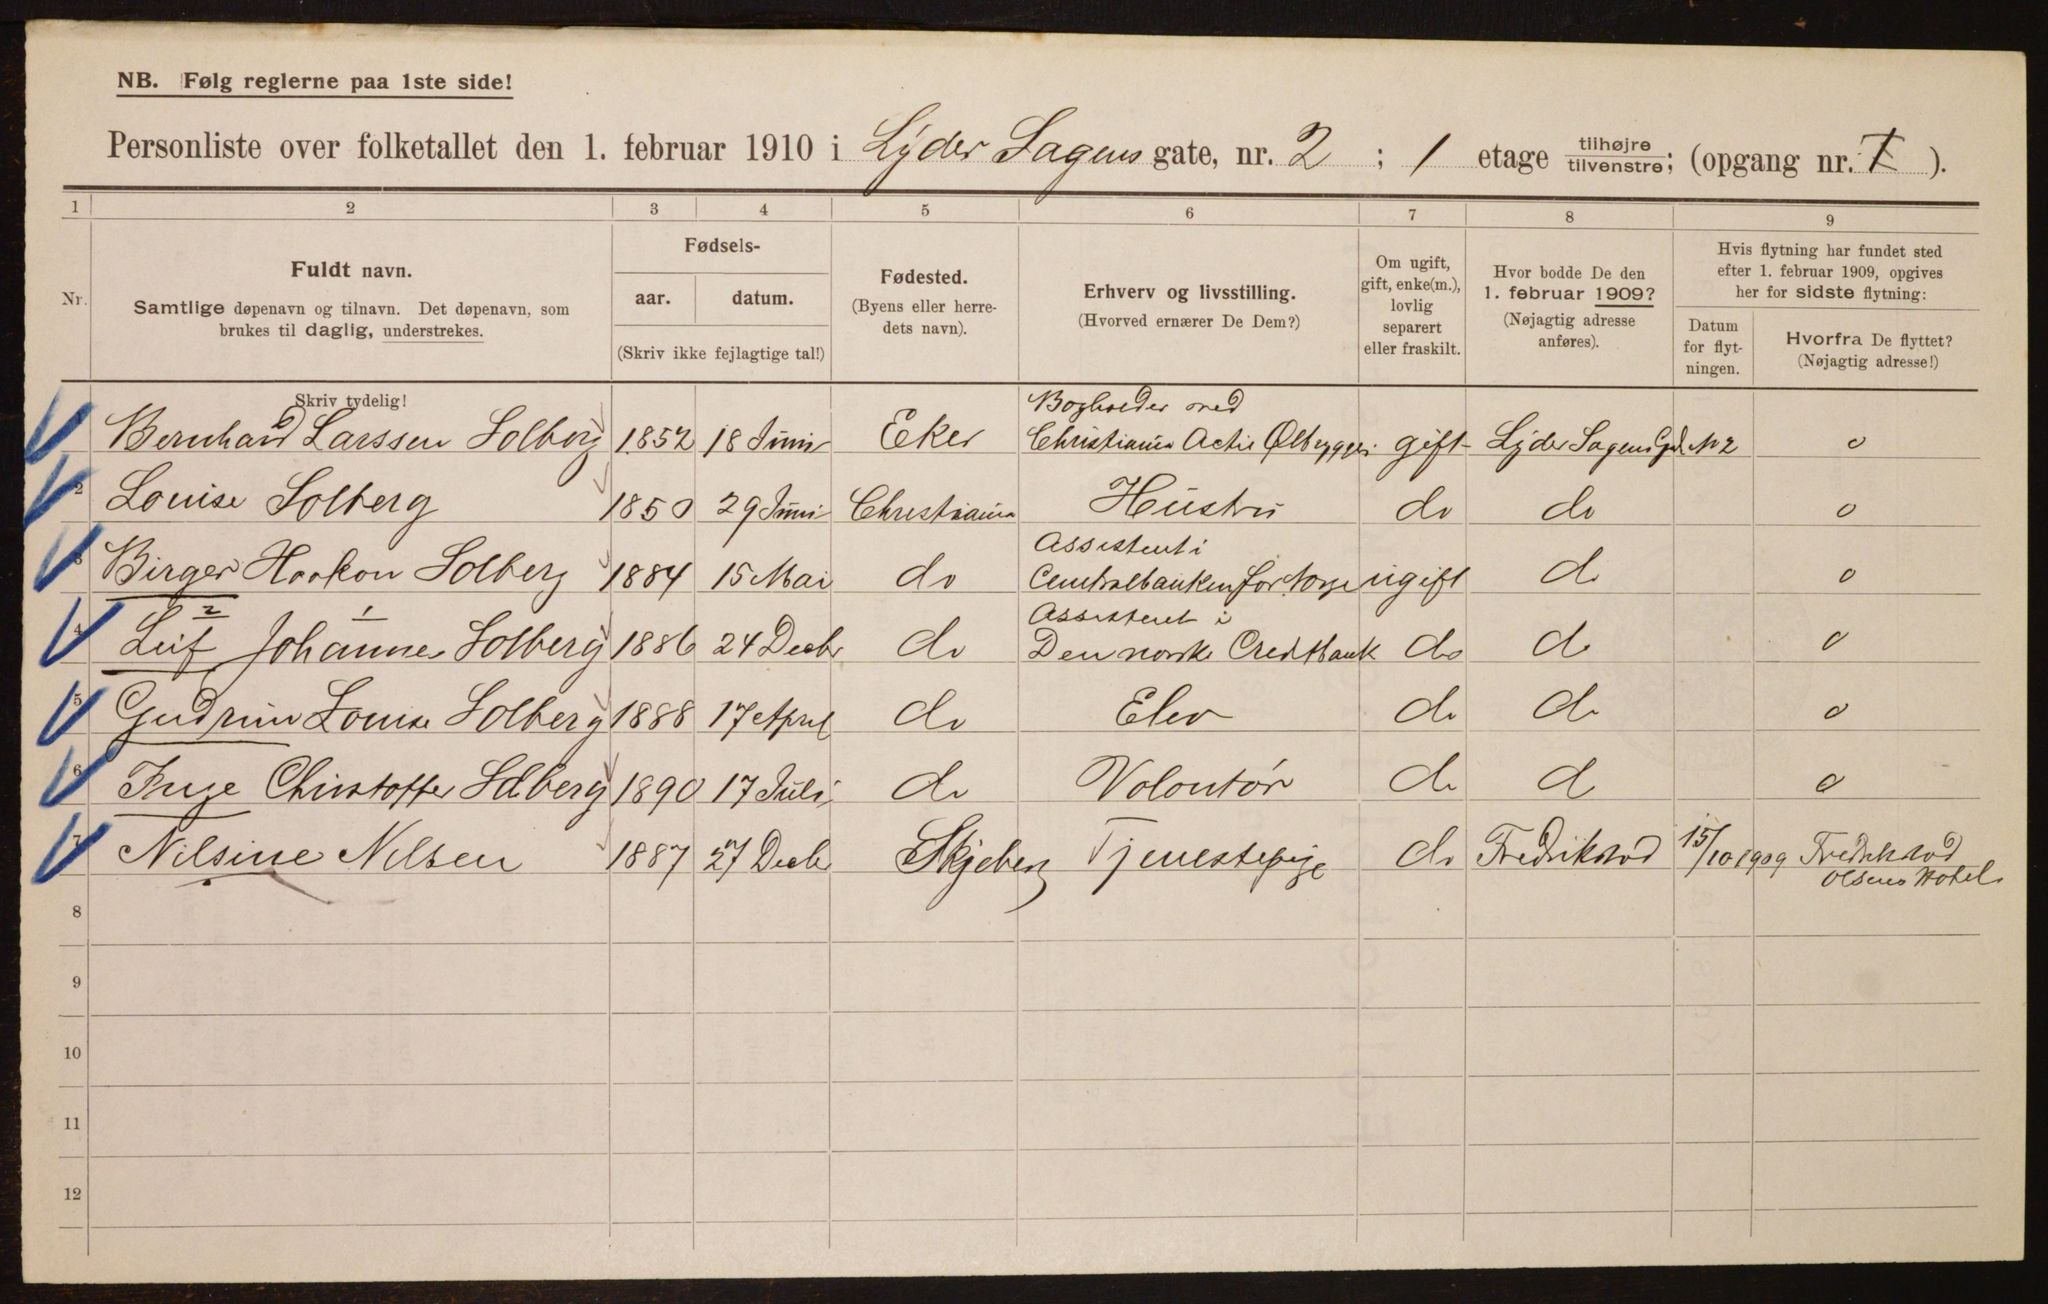 NB. Følg reglerne paa 1ste side!
Personliste over folketallet den 1. februar 1910 i Lyder Sagens gate, nr. 2 ; 1 etage tilhøjre/tilvenstre; (opgang nr. I ).
1 2 3 4 5 6 7 8 9
Nr.
Fuldt navn.
Samtlige døpenavn og tilnavn. Det døpenavn, som
brukes til daglig, understrekes.
Skriv tydelig!
Fødsels-
aar. datum.
(Skriv ikke fejlagtige tal!)
Fødested.
(Byens eller herre-
dets navn).
Erhverv og livsstilling.
(Hvorved ernærer De Dem?)
Om ugift,
gift, enke(m.),
lovlig
separert
eller fraskilt.
Hvor bodde De den
1. februar 1909?
(Nøjagtig adresse
anføres).
Hvis flytning har fundet sted
efter 1. februar 1909, opgives
her for sidste flytning:
Datum
for flyt-
ningen.
Hvorfra De flyttet?
(Nøjagtig adresse!)
Bogholder ved
Bernhard Larssen Solberg 1852 18 Juni Eker Christiania Actie Ølbryggeri gift Lyder Sagens Gd. No 2 o
2 Louise Solberg 1850 29 Juni Christiania Hustru do do o
Assistent i
3 Birger Haakon Solberg 1884 15 Mai do Centralbanken for Norge ugift do o
2 1
Assistent i
4 Leif Johannes Solberg 1886 24 Decbr do Den norske Creditbank do do o
5 Gudrun Louise Solberg 1888 17 April do Elev do do o
6 Inge Christoffer Solberg 1890 17 Juli do Volontør do do o
7 Nilsine Nilsen 1887 27 Decbr Skjeberg Tjenestepige do Fredrikstad 15/10 1909 Fredrikstad
Olsens Hotel
8
9
10
11
12